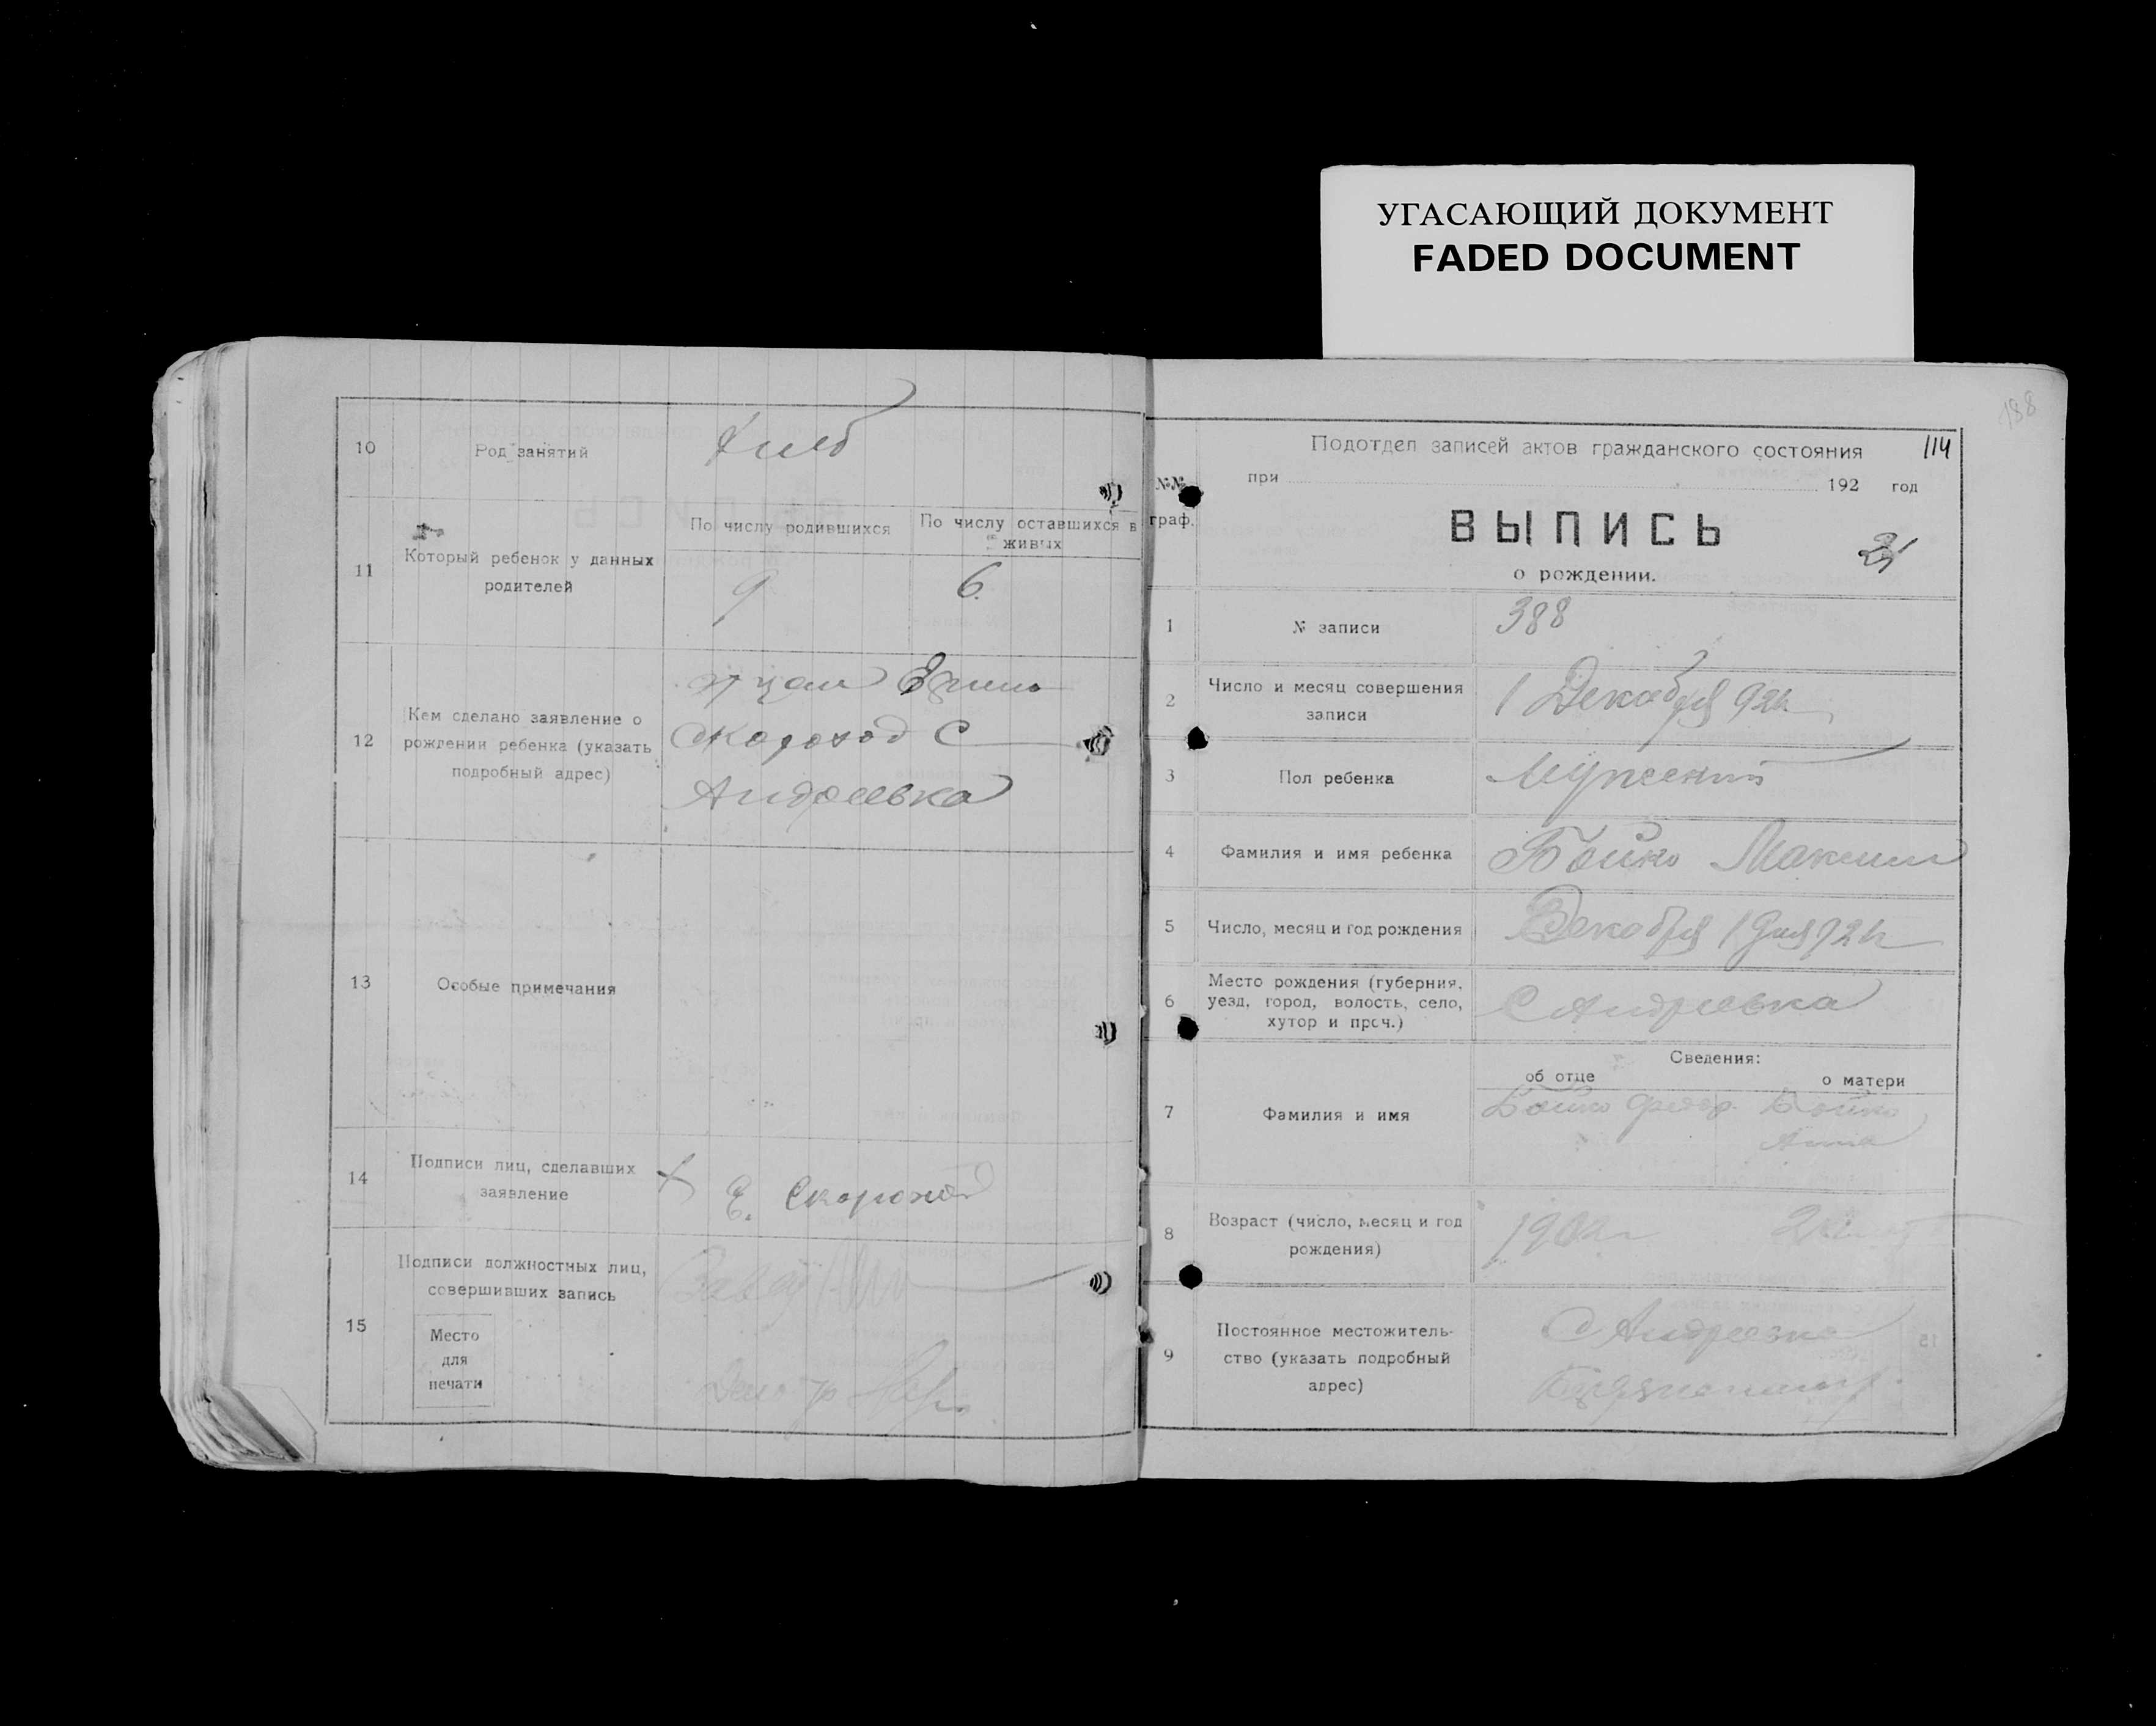 УГАСАЮЩИЙ ДОКУМЕНТ
FADED DOCUMENT
10
Род занятий
Хлеб
11
Который ребенок у данных
родителей
По числу родившихся
По числу оставшихся в
живых
9
6
12
Кем сделано заявление о
рождении ребенка (указать
подробный адрес)
Скороход С
Андреевка
13
Особые примечания
14
Подписи лиц, сделавших
заявление
Е. Скороход
15
Подписи должностных лиц,
совершивших запись
Место
для
печати
188
114
Подотдел записей актов гражданского состояния
при 192 год
№№
граф.
ВЫПИСЬ
о рождении.
1
№ записи
388
2
Число и месяц совершения
записи
1 Декабря
3
Пол ребенка
Мужский
4
Фамилия и имя ребенка
Бойко Максим
5
Число, месяц и год рождения
Декабря 1 дня
6
Место рождения (губерния,
уезд, город, волость, село,
хутор и проч.)
С Андреевка
Сведения:
об отце
о матери
7
Фамилия и имя
Бойко Федор
Бойко
Анна
8
Возраст (число, месяц и год
рождения)
9
Постоянное местожитель-
ство (указать подробный
адрес)
С Андреевка